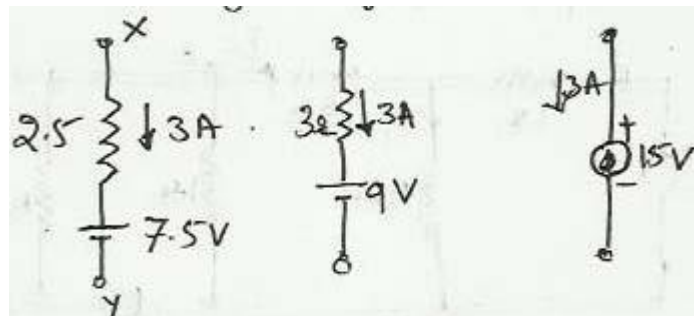 X
2.5
3A
7.5V
Y
3Ω
3A
9V
3A
+
15V
-